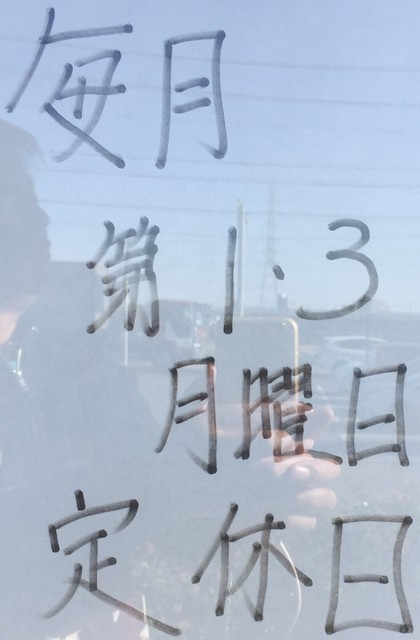 毎月
第1・3
月曜日
定休日